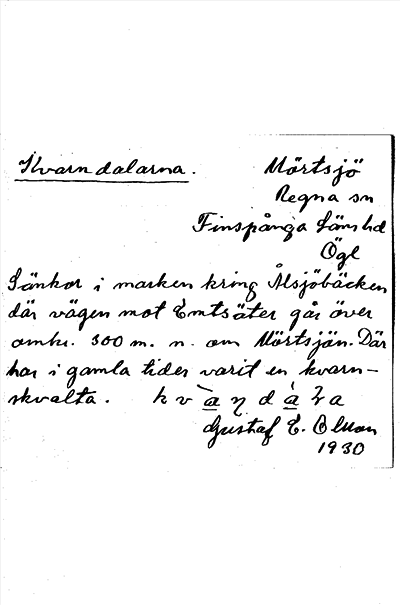 Kvarndalarna. Mörtsjö
Regna sn
Finspånga läns hd
Ögl
Sänkor i marken kring Ålsjöbäcken
där vägen mot Emtsäter går över
omkr. 300 m. n. om Mörtsjön. Där
har i gamla tider varit en kvarn-
skvalta.
Gustaf E. Olsson
1930